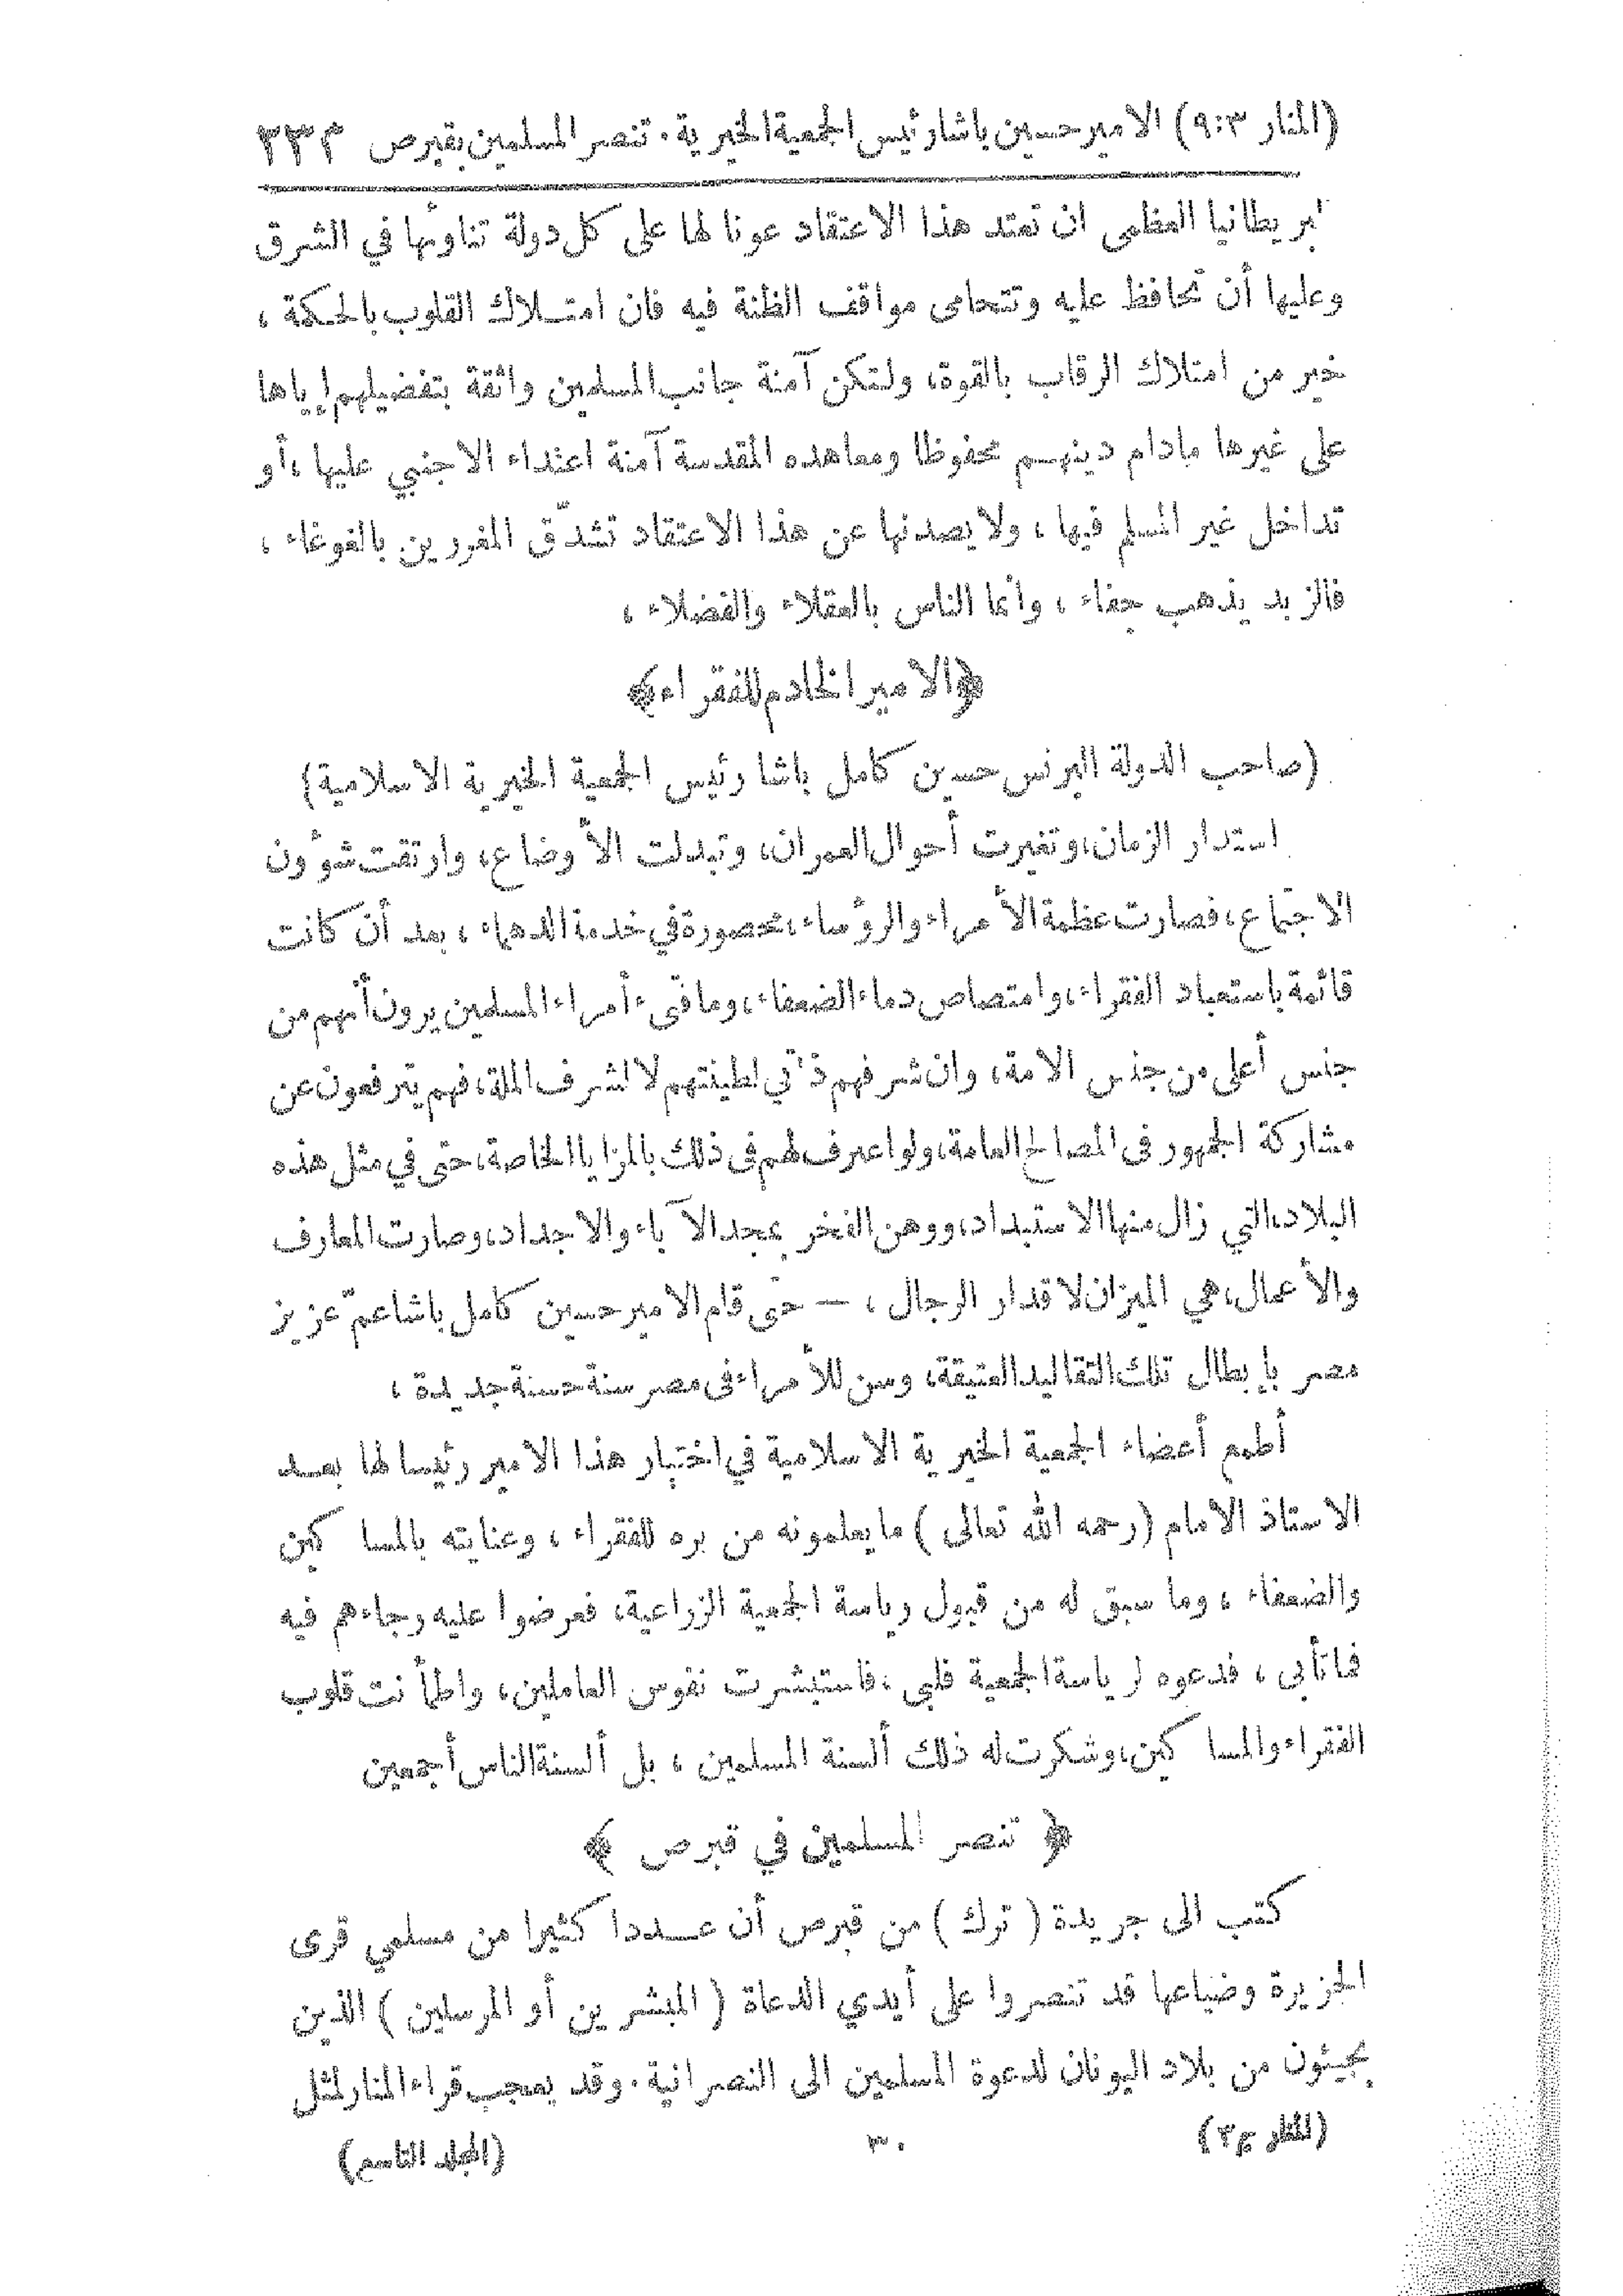 (المنار ٩:٣) الامير حسين باشا رئيس الجمعية الخيرية . تنصر المسلمين بقبرص ٢٣٣
بريطانيا العظمى ان تعتد هذا الاعتقاد عونا لها على كل دولة تناوئها في الشرق
وعليها أن تحافظ عليه وتتحامى مواقف الظنة فيه فان امتـلاك القلوب بالحـكمة ،
خير من امتلاك الرقاب بالقوة، ولتكن آمنة جانب المسلمين واثقة بتفضيلهم إياها
على غيرها مادام دينهـم محفوظا ومعاهده المقدسة آمنة اعتداء الاجنبي عليها ،أو
تداخل غير المسلم فيها ، ولا يصدنها عن هذا الاعتقاد تشدّق المغررين بالغوغاء ،
فالزبد يذهب جفاء ، وانما الناس بالعقلاء والفضلاء ،
﴿الامير الخادم للفقراء﴾
(صاحب الدولة البرنس حسين كامل باشا رئيس الجمعية الخيرية الاسلامية)
استدار الزمان، وتغيرت أحوال العمران، وتبدلت الأوضاع، وارتقت شؤون
الاجتماع، فصارت عظمة الأمراء والرؤساء، محصورة في خدمة الدهماء ، بعد أن كانت
قائمة باستعباد الفقراء، وامتصاص دماء الضعفاء، وما فتىء أمراء المسلمين يرون أنهم من
جنس أعلى من جنس الامة، وان شرفهم ذاتي لطينتهم لا لشرف الملة، فهم يترفعون عن
مشاركة الجمهور فى المصالح العامة، ولو اعترف لهم فى ذلك بالمزايا الخاصة، حتى في مثل هذه
البلاد، التي زال منها الاستبداد، ووهن الفخر بمجد الآباء والاجداد، وصارت المعارف
والأعمال، هي الميزان لاقدار الرجال ، — حتى قام الامير حسين كامل باشا عمّ عزيز
مصر بإبطال تلك التقاليد العتيقة، وسن للأمراء فى مصر سنة حسنة جديدة ،
أطمع أعضاء الجمعية الخيرية الاسلامية في اختيار هذا الامير رئيسا لها بعـد
الاستاذ الامام (رحمه الله تعالى) ما يعلمونه من بره للفقراء ، وعنايته بالمساكين
والضعفاء ، وما سبق له من قبول رياسة الجمعية الزراعية، فعرضوا عليه رجاءهم فيه
فما تأبى ، فدعوه لرياسة الجمعية فلبى ، فاستبشرت نفوس العاملين، واطمأنت قلوب
الفقراء والمساكين، وشكرت له ذلك ألسنة المسلمين ، بل ألسنة الناس أجمعين
﴿ تنصر المسلمين في قبرص ﴾
كتب الى جريدة (ترك) من قبرص أن عـددا كثيرا من مسلمي قرى
الجزيرة وضياعها قد تنصروا على أيدي الدعاة (المبشرين أو المرسلين) الذين
يجيئون من بلاد اليونان لدعوة المسلمين الى النصرانية . وقد يعجب قراء المنار لمثل
(المنار ج٣) ٣٠ (المجلد التاسع)